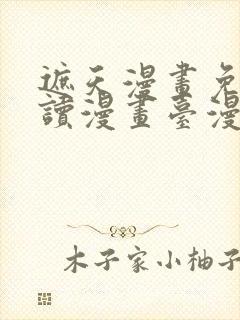 遮天漫畫免
讀漫畫臺漫
木子家小柚子